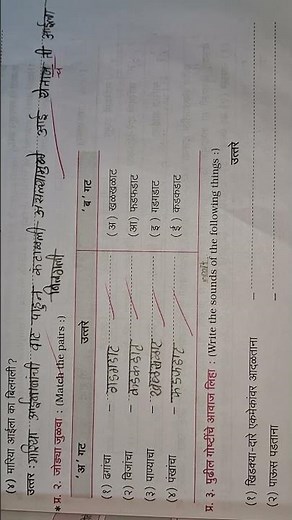 (४) गारिया आईला का बिलगली?
उत्तर : गारिया वाट पाहून कंटाळली असल्यामुळे आई येताच ती आईला
बिलगली
* प्र. २. जोड्या जुळवा : (Match the pairs :)
'अ' गट उत्तरे 'ब' गट
(१) ढगांचा – गडगडाट (अ) खळखळाट
(२) विजांचा – कडकडाट (आ) फडफडाट
(३) पाण्याचा – खळखळाट (इ) गडगडाट
(४) पंखांचा – फडफडाट (ई) कडकडाट
प्र. ३. पुढील गोष्टींचे आवाज लिहा : (Write the sounds of the following things :)
उत्तरे
(१) खिडक्या-दारे एकमेकांवर आदळताना –
(२) पाऊस पडताना –